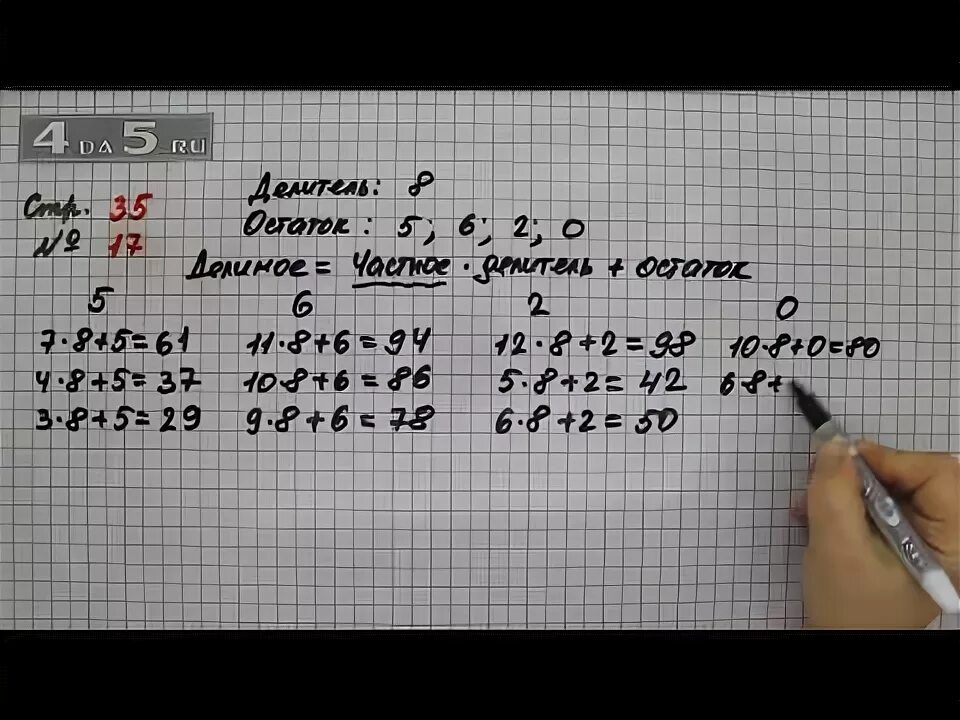 4 DA 5 RU
Стр. 35
№ 17
Делитель: 8
Остаток: 5; 6; 2; 0
Делимое = Частное · делитель + остаток
5 6 2 0
7·8+5=61 11·8+6=94 12·8+2=98 10·8+0=80
4·8+5=37 10·8+6=86 5·8+2=42 6·8+
3·8+5=29 9·8+6=78 6·8+2=50